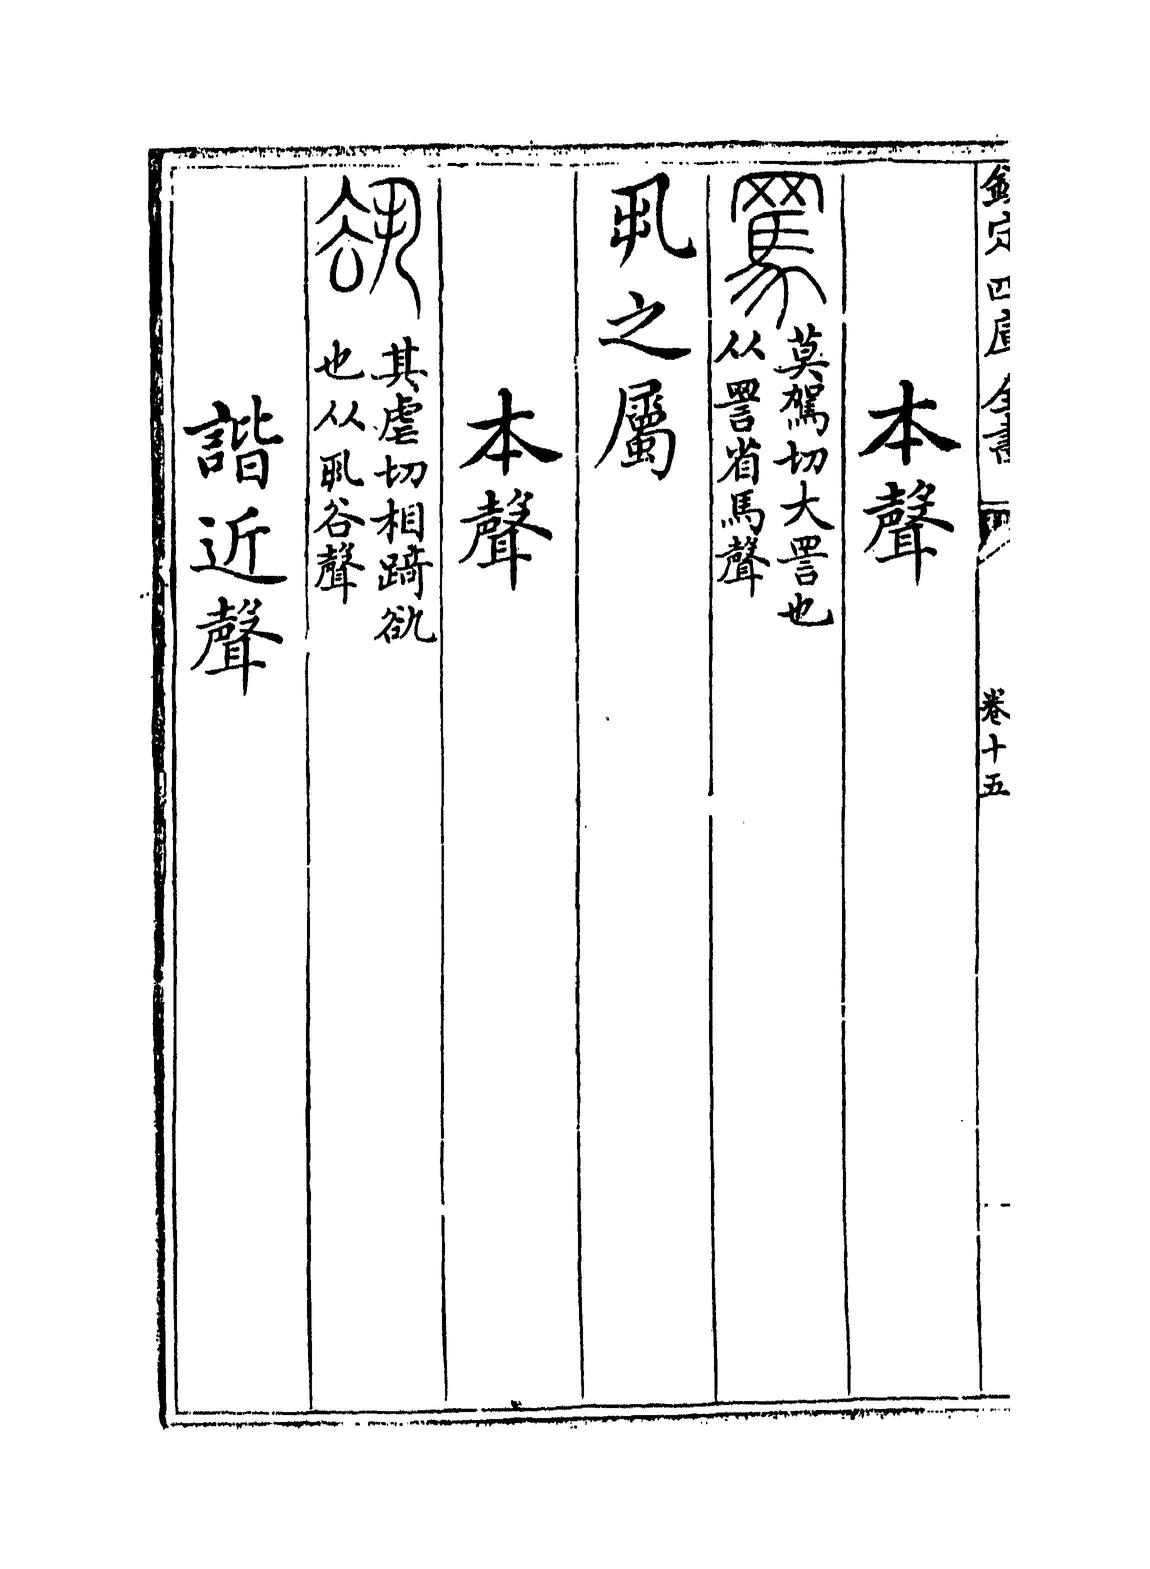 欽定四庫全書 卷十五
本聲
罵 莫駕切大詈也
从詈省馬聲
丮之屬
本聲
谻 其虐切相踦谻
也从丮谷聲
諧近聲